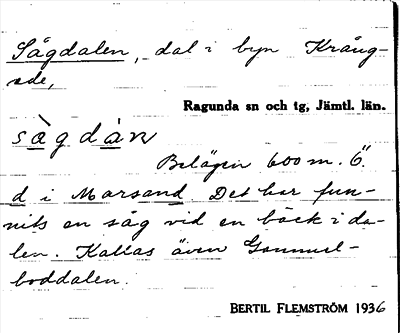 Sågdalen, dal i byn Krång-
ede,
Ragunda sn och tg, Jämtl. län.
sàgdàn
Belägen 600 m. Ö.
d i Marsand. Det har fun-
nits en såg vid en bäck i da-
len. Kallas även Gammel-
boddalen.
BERTIL FLEMSTRÖM 1936